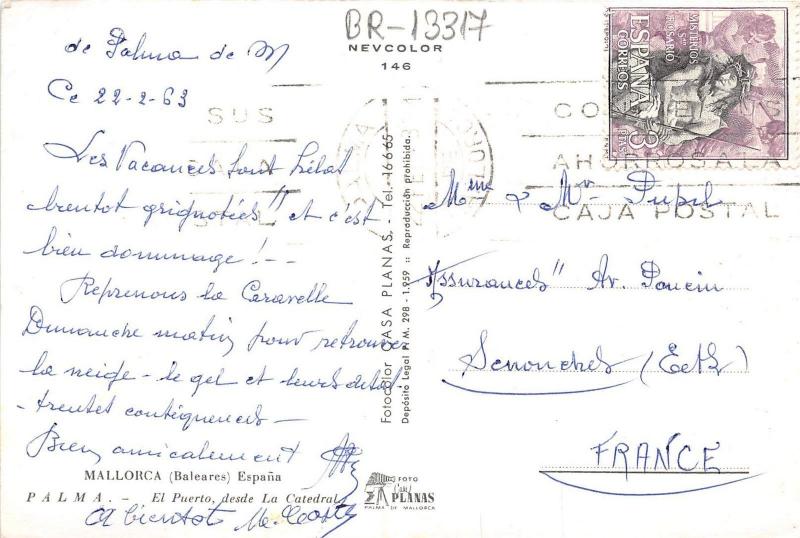 BR-13317
NEVCOLOR
146
de Palma de M
Ce 22-2-63
Les Vacances sont hélas
bientot grignotées" et c'est
bien dommage ! --
Reprenons la Caravelle
Dimanche matin pour retrouver
la neige - le gel et leurs
Bien amicalement
MALLORCA (Baleares) España
PALMA. - El Puerto, desde La Catedral
A bientot
Fotocolor CASA PLANAS. - Tel. 16665
Depósito Legal P. M. 298 - 1.959 :: Reproducción prohibida.
FOTO
Casa
PLANAS
PALMA DE MALLORCA
MISTERIOS
S.TO
ROSARIO
ESPAÑA
CORREOS
3 PTAS
SUS
AHORROS A LA
CAJA POSTAL
Mme & Mr Pupil
Assurances" Av.
Senonches (E et L)
FRANCE